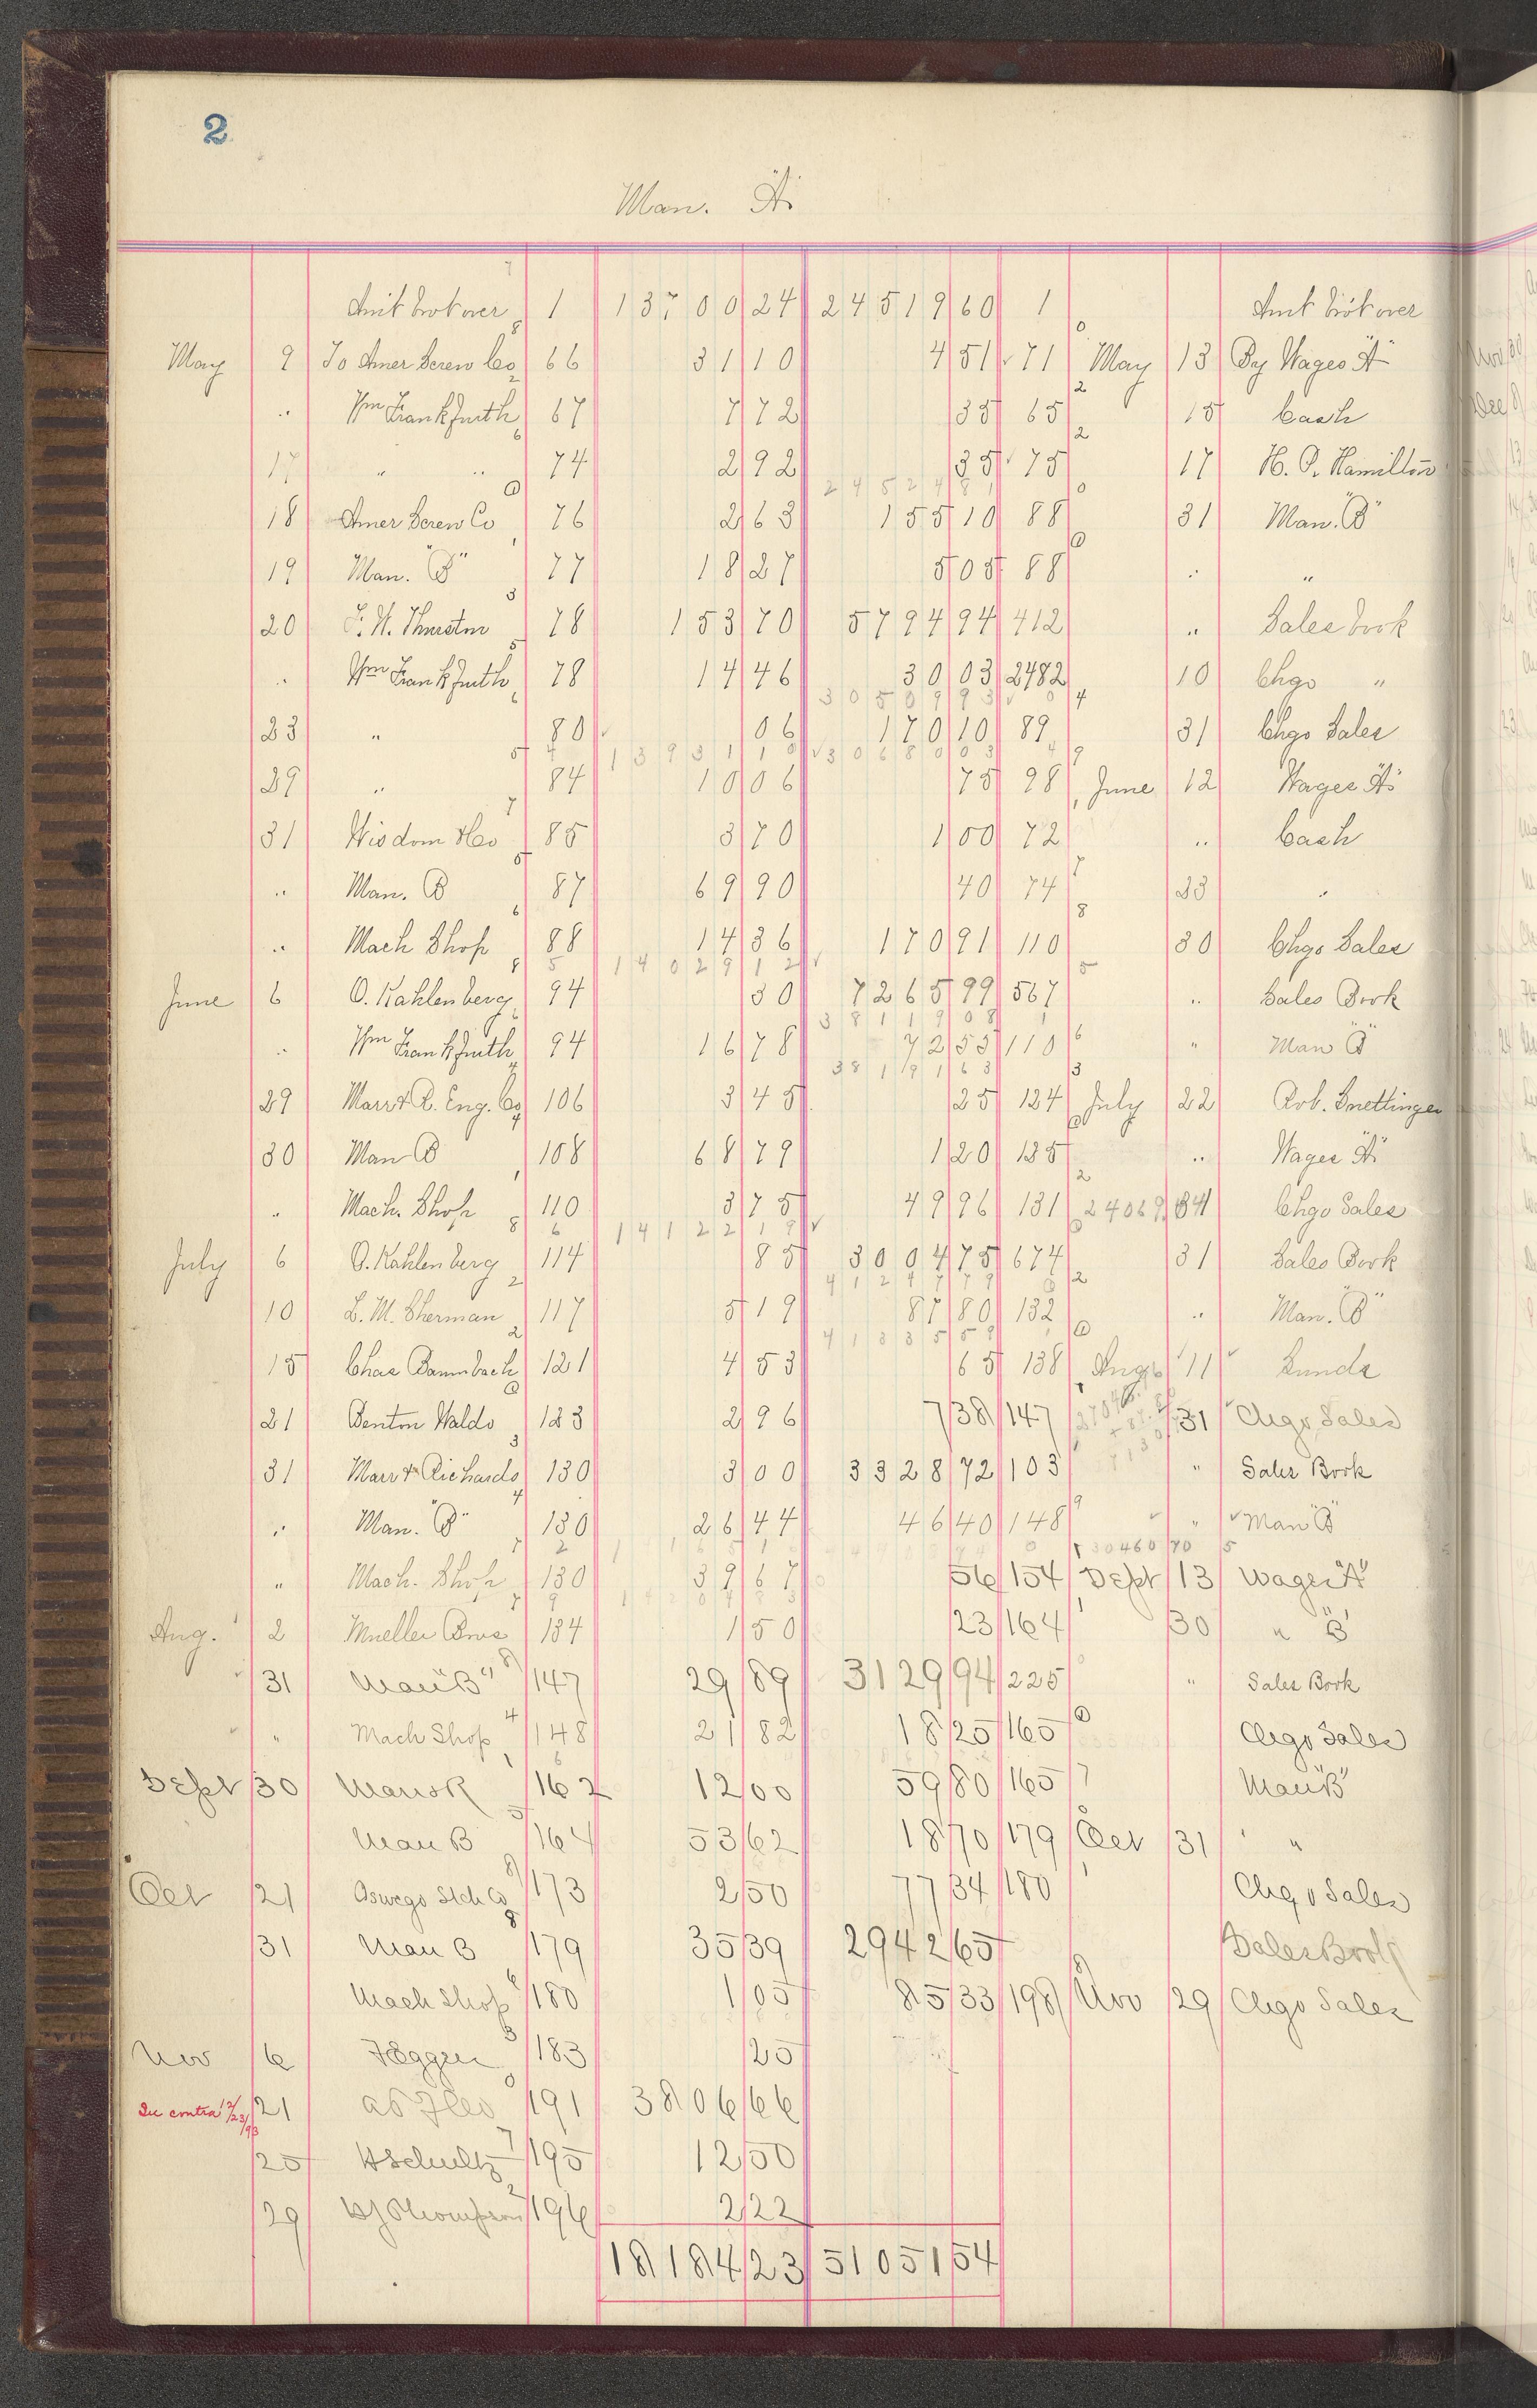 2
Man. "A"
Amt brot over 1 13700 24 24519 60 1 Amt brot over
May 9 To Amer Screw Co 66 31 10 4 51 71 May 13 By Wages "A"
" Wm Frankfurth 67 7 72 35 65 15 Cash
17 " " 74 2 92 35 75 17 H. P. Hamilton
2452481
18 Amer Screw Co 76 2 63 155 10 88 31 Man. "B"
19 Man. "B" 77 18 27 5 05 88 " "
20 F. W. Thurston 78 153 70 5794 94 412 " Sales book
" Wm Frankfurth 78 14 46 30 03 2482 10 Chgo "
3050993
23 " 80 06 170 10 89 31 Chgo Sales
1393110 3068003
29 " 84 10 06 75 98 June 12 Wages "A"
31 Wisdom & Co 85 3 70 1 00 72 " Cash
" Man. B 87 69 90 40 74 23 "
" Mach Shop 88 14 36 170 91 110 30 Chgo Sales
1402912
June 6 O. Kahlenberg 94 30 7265 99 567 " Sales Book
3811908
" Wm Frankfurth 94 16 78 72 55 110 " Man "B"
3819163
29 Marr & R. Eng. Co 106 3 45 25 124 July 22 Rob.
30 Man B 108 68 79 1 20 135 " Wages "A"
" Mach. Shop 110 3 75 49 96 131 24069 84 Chgo Sales
1412219
July 6 O. Kahlenberg 114 85 3004 75 674 31 Sales Book
4124779
10 L. M. Sherman 117 5 19 87 80 132 " Man. "B"
4133559
15 Chas Baumbach 121 4 53 65 138 Aug 11 Sunds
21 Benton Waldo 123 2 96 7 38 147 31 Chgo Sales
31 Marr & Richards 130 3 00 3328 72 103 " Sales Book
" Man. "B" 130 26 44 46 40 148 " Man "B"
30460 70
" Mach. Shop 130 39 67 56 154 Sept 13 Wages "A"
Aug. 2 Mueller Bros 134 1 50 23 164 30 " "B"
31 Man "B" 147 29 89 3129 94 225 " Sales Book
" Mach Shop 148 21 82 18 25 165 Chgo Sales
Sept 30 Mar & R 162 12 00 59 80 165 Man "B"
Man B 164 53 62 18 70 179 Oct 31 "
Oct 21 Oswego Stch Co 173 2 50 77 34 180 Chgo Sales
31 Man B 179 35 39 2942 65 Sales Book
Mach Shop 180 1 05 85 33 198 Nov 29 Chgo Sales
Nov 6 F Eggers 183 25
See contra 12/23/93 21 191 3806 66
25 H Schultz 195 12 50
29 Thompson 196 2 22
18184 23 51051 54